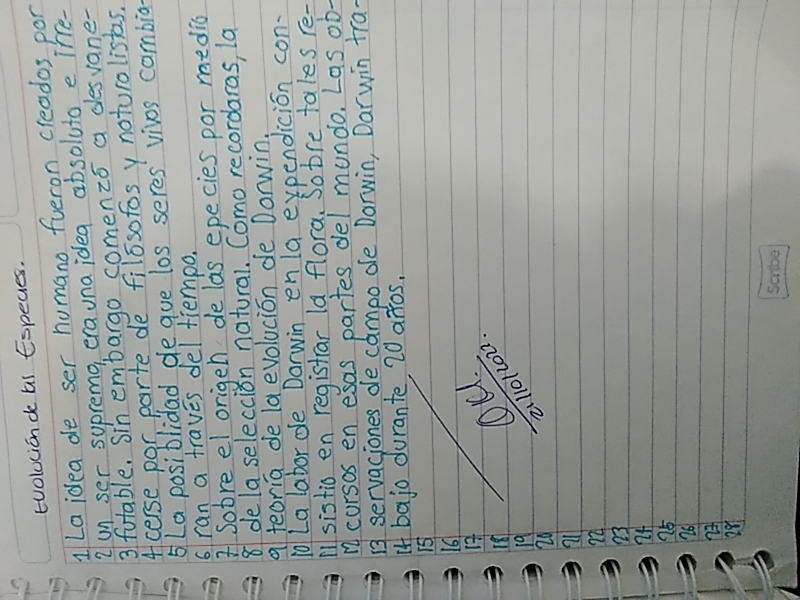 Evolución de las Especies.
1 La idea de ser humano fueron creados por
2 un ser supremo, era una idea absoluta e irre-
3 futable. Sin embargo comenzó a desvane-
4 cerse por parte de filósofos y naturalistas.
5 La posiblidad de que los seres vivos cambia-
6 ran a través del tiempo.
7 Sobre el origen de las epecies por medio
8 de la selección natural. Como recordaras, la
9 teoría de la evolución de Darwin.
10 La labor de Darwin en la expendición con-
11 sistio en registrar la flora. Sobre tales re-
12 cursos en esas partes del mundo. Las ob-
13 servaciones de campo de Darwin, Darwin tra-
14 bajo durante 20 años.
15
16
17
18
19
20
21
22
23
24
25
26
27
28
Scribe